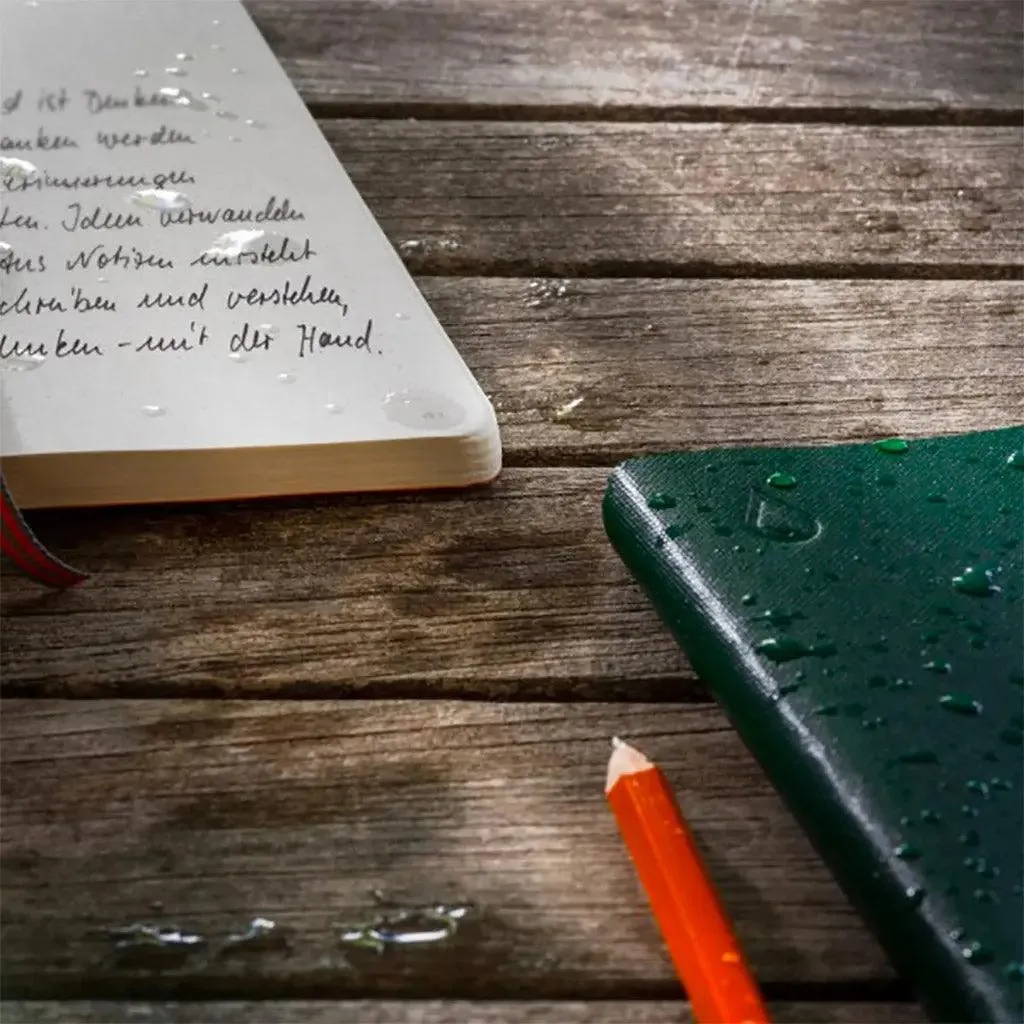 d ist Denken
anken werden
erinnerungen
ten. Ideen verwandeln
Aus Notizen entsteht
chreiben und verstehen,
denken - mit der Hand.